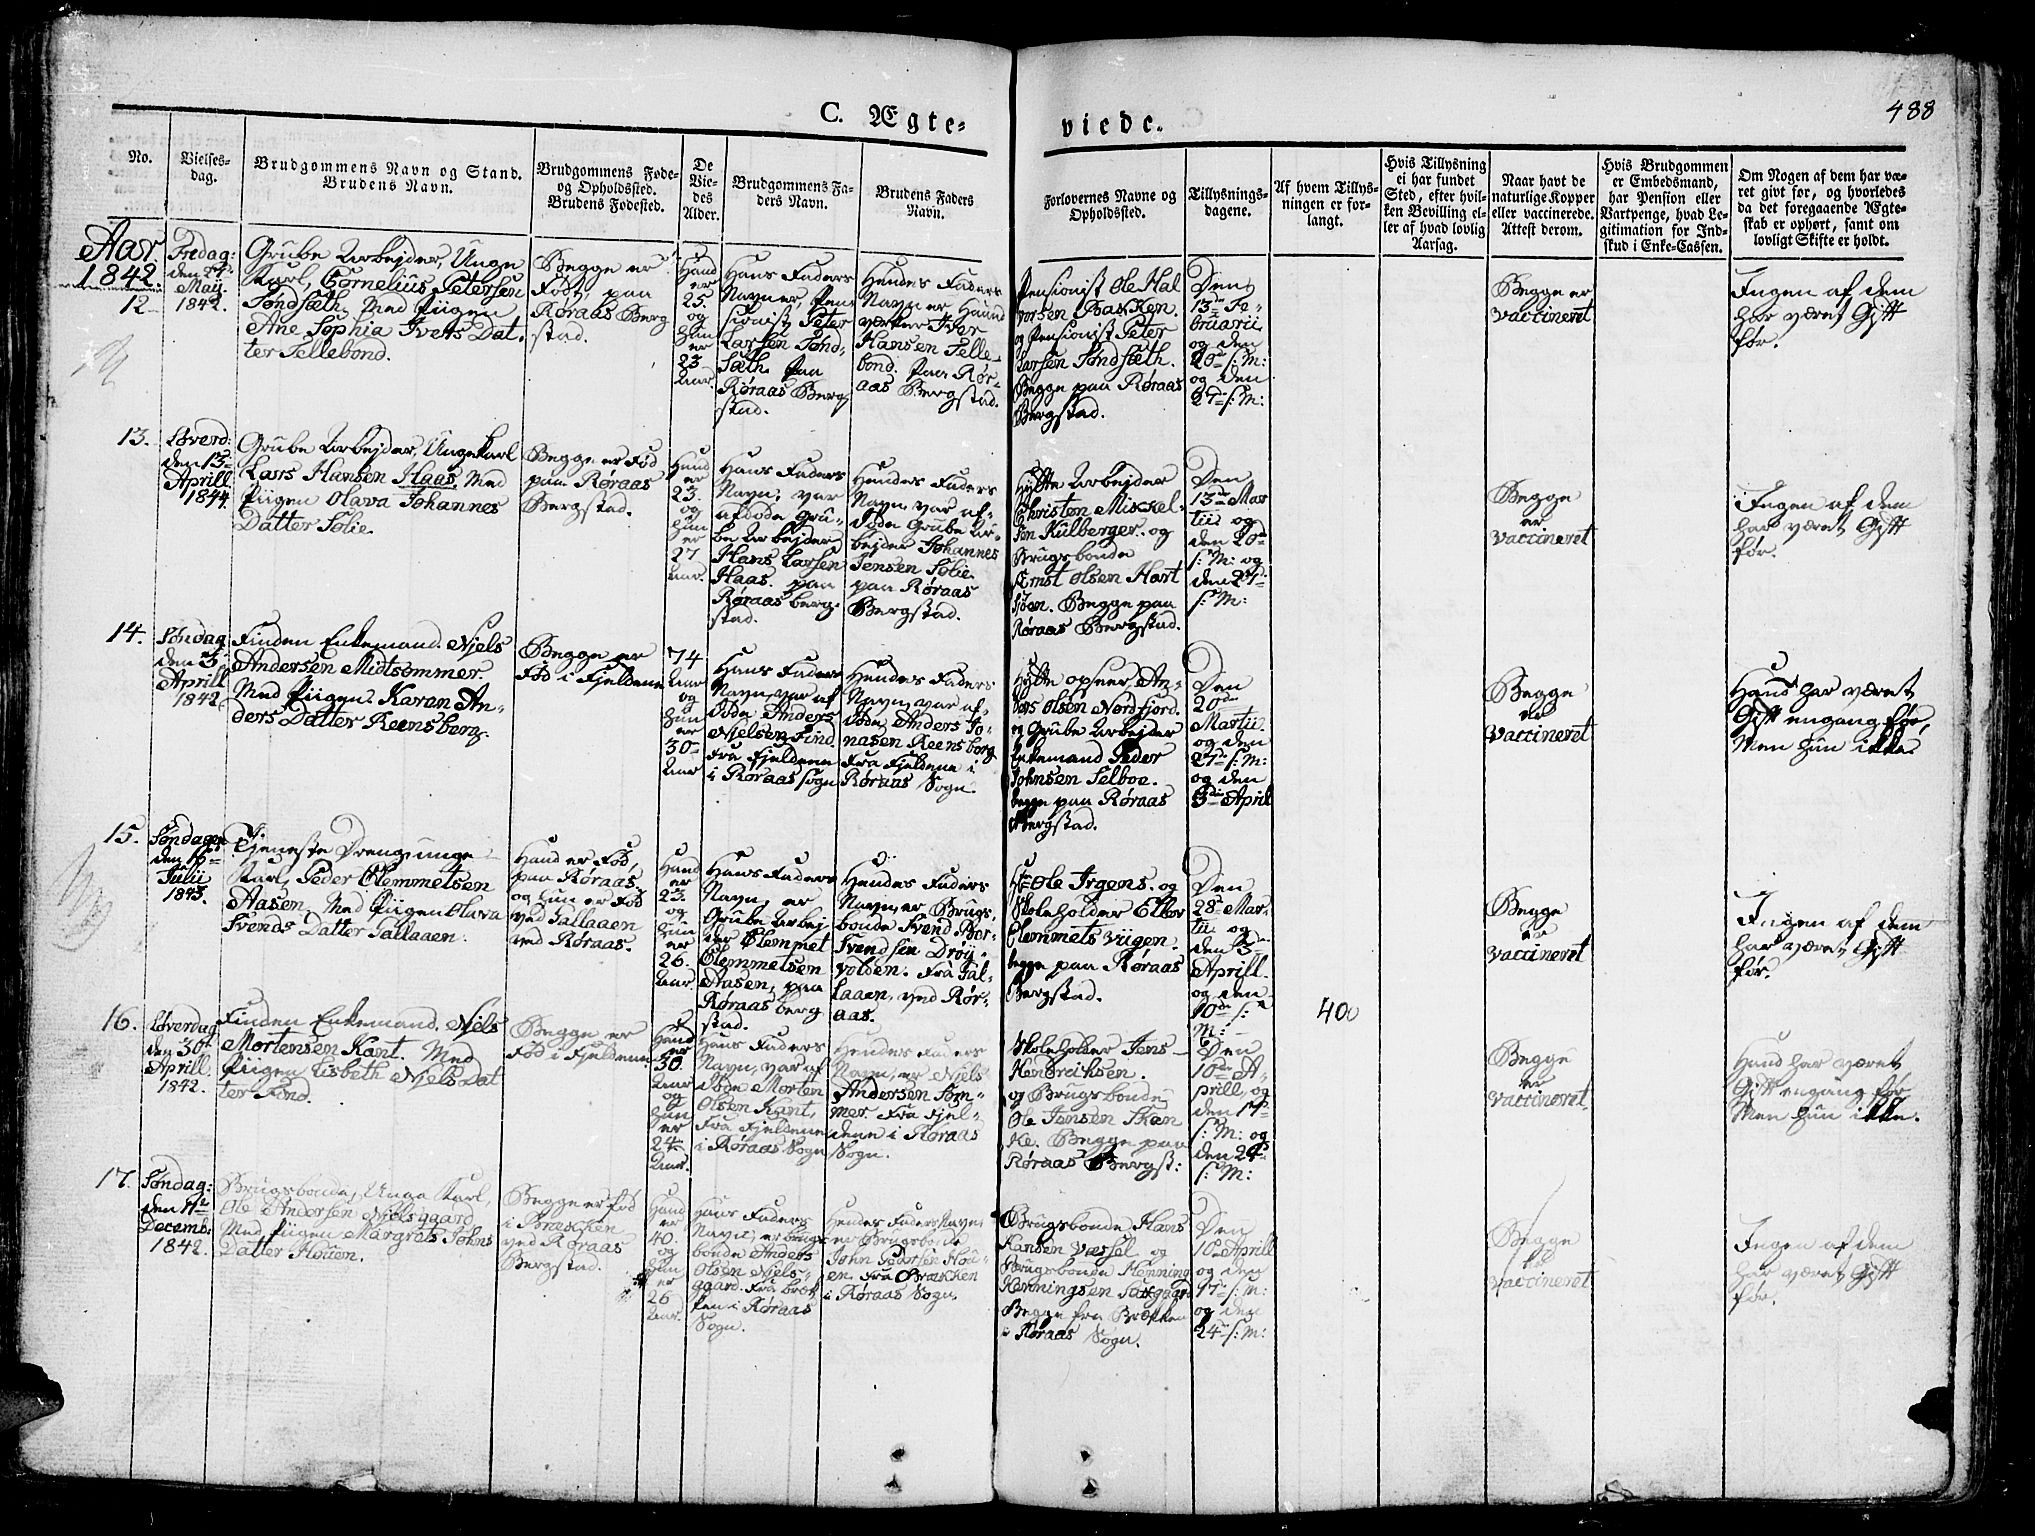 C. Ægte-
viede.
488
No.
Vielses-
dag.
Brudgommens Navn og Stand.
Brudens Navn.
Brudgommens Føde-
og Opholdssted.
Brudens Fødested.
De
Vie-
des
Alder.
Brudgommens Fa-
ders Navn.
Brudens Faders
Navn.
Forlovernes Navne og
Opholdssted.
Tillysnings-
dagene.
Af hvem Tillys-
ningen er for-
langt.
Hvis Tillysning
ei har fundet
Sted, efter hvil-
ken Bevilling el-
ler af hvad lovlig
Aarsag.
Naar havt de
naturlige Kopper
eller vaccinerede.
Attest derom.
Hvis Brudgommen
er Embedsmand,
har Pension eller
Vartpenge, hvad Le-
gitimation for Ind-
skud i Enke-Cassen.
Om Nogen af dem har væ-
ret givt før, og hvorledes
da det foregaaende Ægte-
skab er ophørt, samt om
lovligt Skifte er holdt.
Aar.
1842.
12
Fredag:
den
Maij.
1842.
Grube Arbejder, Unge
Karl, Cornelius Petersen
Tondsæth, Med Piigen
Ane Sophia Ivers Dat,
ter Tellebond.
Begge er
Født, paa
Røraas Berg
stad.
Hand
er
25.
og
Hun
er
23.
Aar
Hans Faders
Navn er, Pen,
sionist Peter
Larsen Tønd-
Sæth. paa
Røraas Berg,
stad.
Hendes Faders
Navn er Haand
værker Iver
Hansen Telle-
bond. paa Rør-
aas Bergstad.
Pensionist Ole Hal
vorsen Bakken.
og Pensionist Peter
Larsen Tøndsæth.
Begge paa Røraas
Bergstad.
Den
13de Fe-
bruarii
og den
20de s: M:
og den
27de s: M:
Begge er
vaccineret
Ingen af dem
har været Gift
før.
13.
Løverd:
den 13
Aprill
1844
Grube Arbejder, Ungekarl
Lars Hansen Haas. Med
Piigen Olava Johannes
Datter Solie.
Begge er Fød
paa Røraas
Bergstad.
Hand
er
23.
og
Hun
er
27
Aar.
Hans Faders
Navn, var
afdøde Gru-
be Arbejder
Hans Larsen
Haas. paa
Røraas berg-
stad.
Hendes Faders
Navn var af-
døde Grube Ar-
bejder Johannes
Jensen Solie.
paa Røraas
Bergstad.
Hytte Arbejder
Christen Mikkel-
sen Kulberger. og
Brugsbonde
Ernst Olsen Hart
sjøen. Begge paa
Røraas Bergstad.
Den
13de Mar
tii og
den 20de
s: M: og
den 27de
s: M:
Begge
er
vaccineret
Ingen af dem
har været Gift
før.
14.
Søndag
den 3
Aprill
1842
Finden Enkemand. Niels
Andersen Midtsommer.
Med Piigen. Karen An-
ders Datter Reensberg.
Begge er
Fød i Fjeldene
74
Aar
og
Hun
er
30
Aar
Hans Faders
Navn, var af
døde Anders
Nielsen Find.
Fra Fjeldene
i Røraas Sogn
Hendes Faders
Navn, var af-
døde Anders Jo-
nasen Reensberg
Fra Fjeldene i
Røraas Sogn.
Hytte opseer An-
ders Olsen Nordfjord.
og Grube Arbejder
Enkemand Peder
Johnsen Selboe.
begge paa Røraas
Bergstad.
Den
20de
Martii.
og den
27de s: M:
og den
3die April
Begge
er
vaccineret
Hand har været
Gift engang før,
Men hun ikke.
15.
Søndagen
den 16
Julii
1843.
Tjeneste Dreng unge
Karl, Peder Clemmetsen
Aasen, Med Piigen Olava
Svends Datter Gallaaen.
Hand er Fød,
paa Røraas.
og Hun er Fød
ved Gallaaen
ved Røraas.
Hand
er
23.
og
Hun
er
26.
Aar
Hans Faders
Navn, er
Grube Arbej
der Clemmet
Clemmetsen
Aasen, paa
Røraas berg
stad.
Hendes Faders
Navn, er Brugs-
bonde Svend Bor-
Svendsen Drøy-
volsen. Fra Gal-
laaen, ved Rør-
aas.
Hr. Ole Irgens. og
Skoleholder Elbor
Clemmets Viigen.
begge paa Røraas
Bergstad.
Den
28de Mar-
tii og
den 3die
Aprill.
og den
10de s:
M:
Begge
er
vaccineret
Ingen af dem
har været Gift
før.
16.
Løverdag
den 30te
Aprill,
1842.
Finden Enkemand. Niels
Mortensen Kant. Med
Piigen Lisbeth Niels Dat
ter Fond.
Begge er
Fød i Fjeldene
Hand
er
30.
Aar
og
Hun
er
24
Aar.
Hans Faders
Navn, var af
døde Morten
Olsen Kant,
Fra Fjeldene
i Røraas Sogn
Hendes Faders
Navn, er Niels
Andersen Som-
mer Fra Fjel-
dene i Røraas
Sogn.
Skoleholder Jens
Hendrichsen.
og Brugsbonde
Ole Jensen Skan
ke. Begge paa
Røraas Bergst:
Den
10de A-
prill, og
den 17de
s: M: og
den 24de
s: M:
400
Begge
er
vaccineret
Hand har været
Gift engang før
Men hun ikke.
17.
Søndag:
den
Decemb.
1842.
Brugsbonde, Unge Karl,
Ole Andersen Nielsgaard
Med Piigen Margrets Johns
Datter Houen.
Begge er Fød
i Brækken
ved Røraas
Bergstad.
Hand
er
40.
og
Hun
er
26
Aar.
Hans Faders
Navn, er brugs
bonde Anders
Olsen Niels-
gaard. Fra Bræk
ken i Røraas
Sogn.
Hendes Faders Navn,
er Brugsbonde
John Pedersen Hou-
en. Fra Brækken
i Røraas Sogn.
Brugsbonde Hans
Hansen Væssel og
Brugsbonde Henning
Henningsen Saxgaar.
Begge fra Brækken
i Røraas Sogn.
Den
10de Aprill
og den
17de s: M:
og den
24de s: M:
Begge
er
vaccineret
Ingen af dem
har været Gift
før.